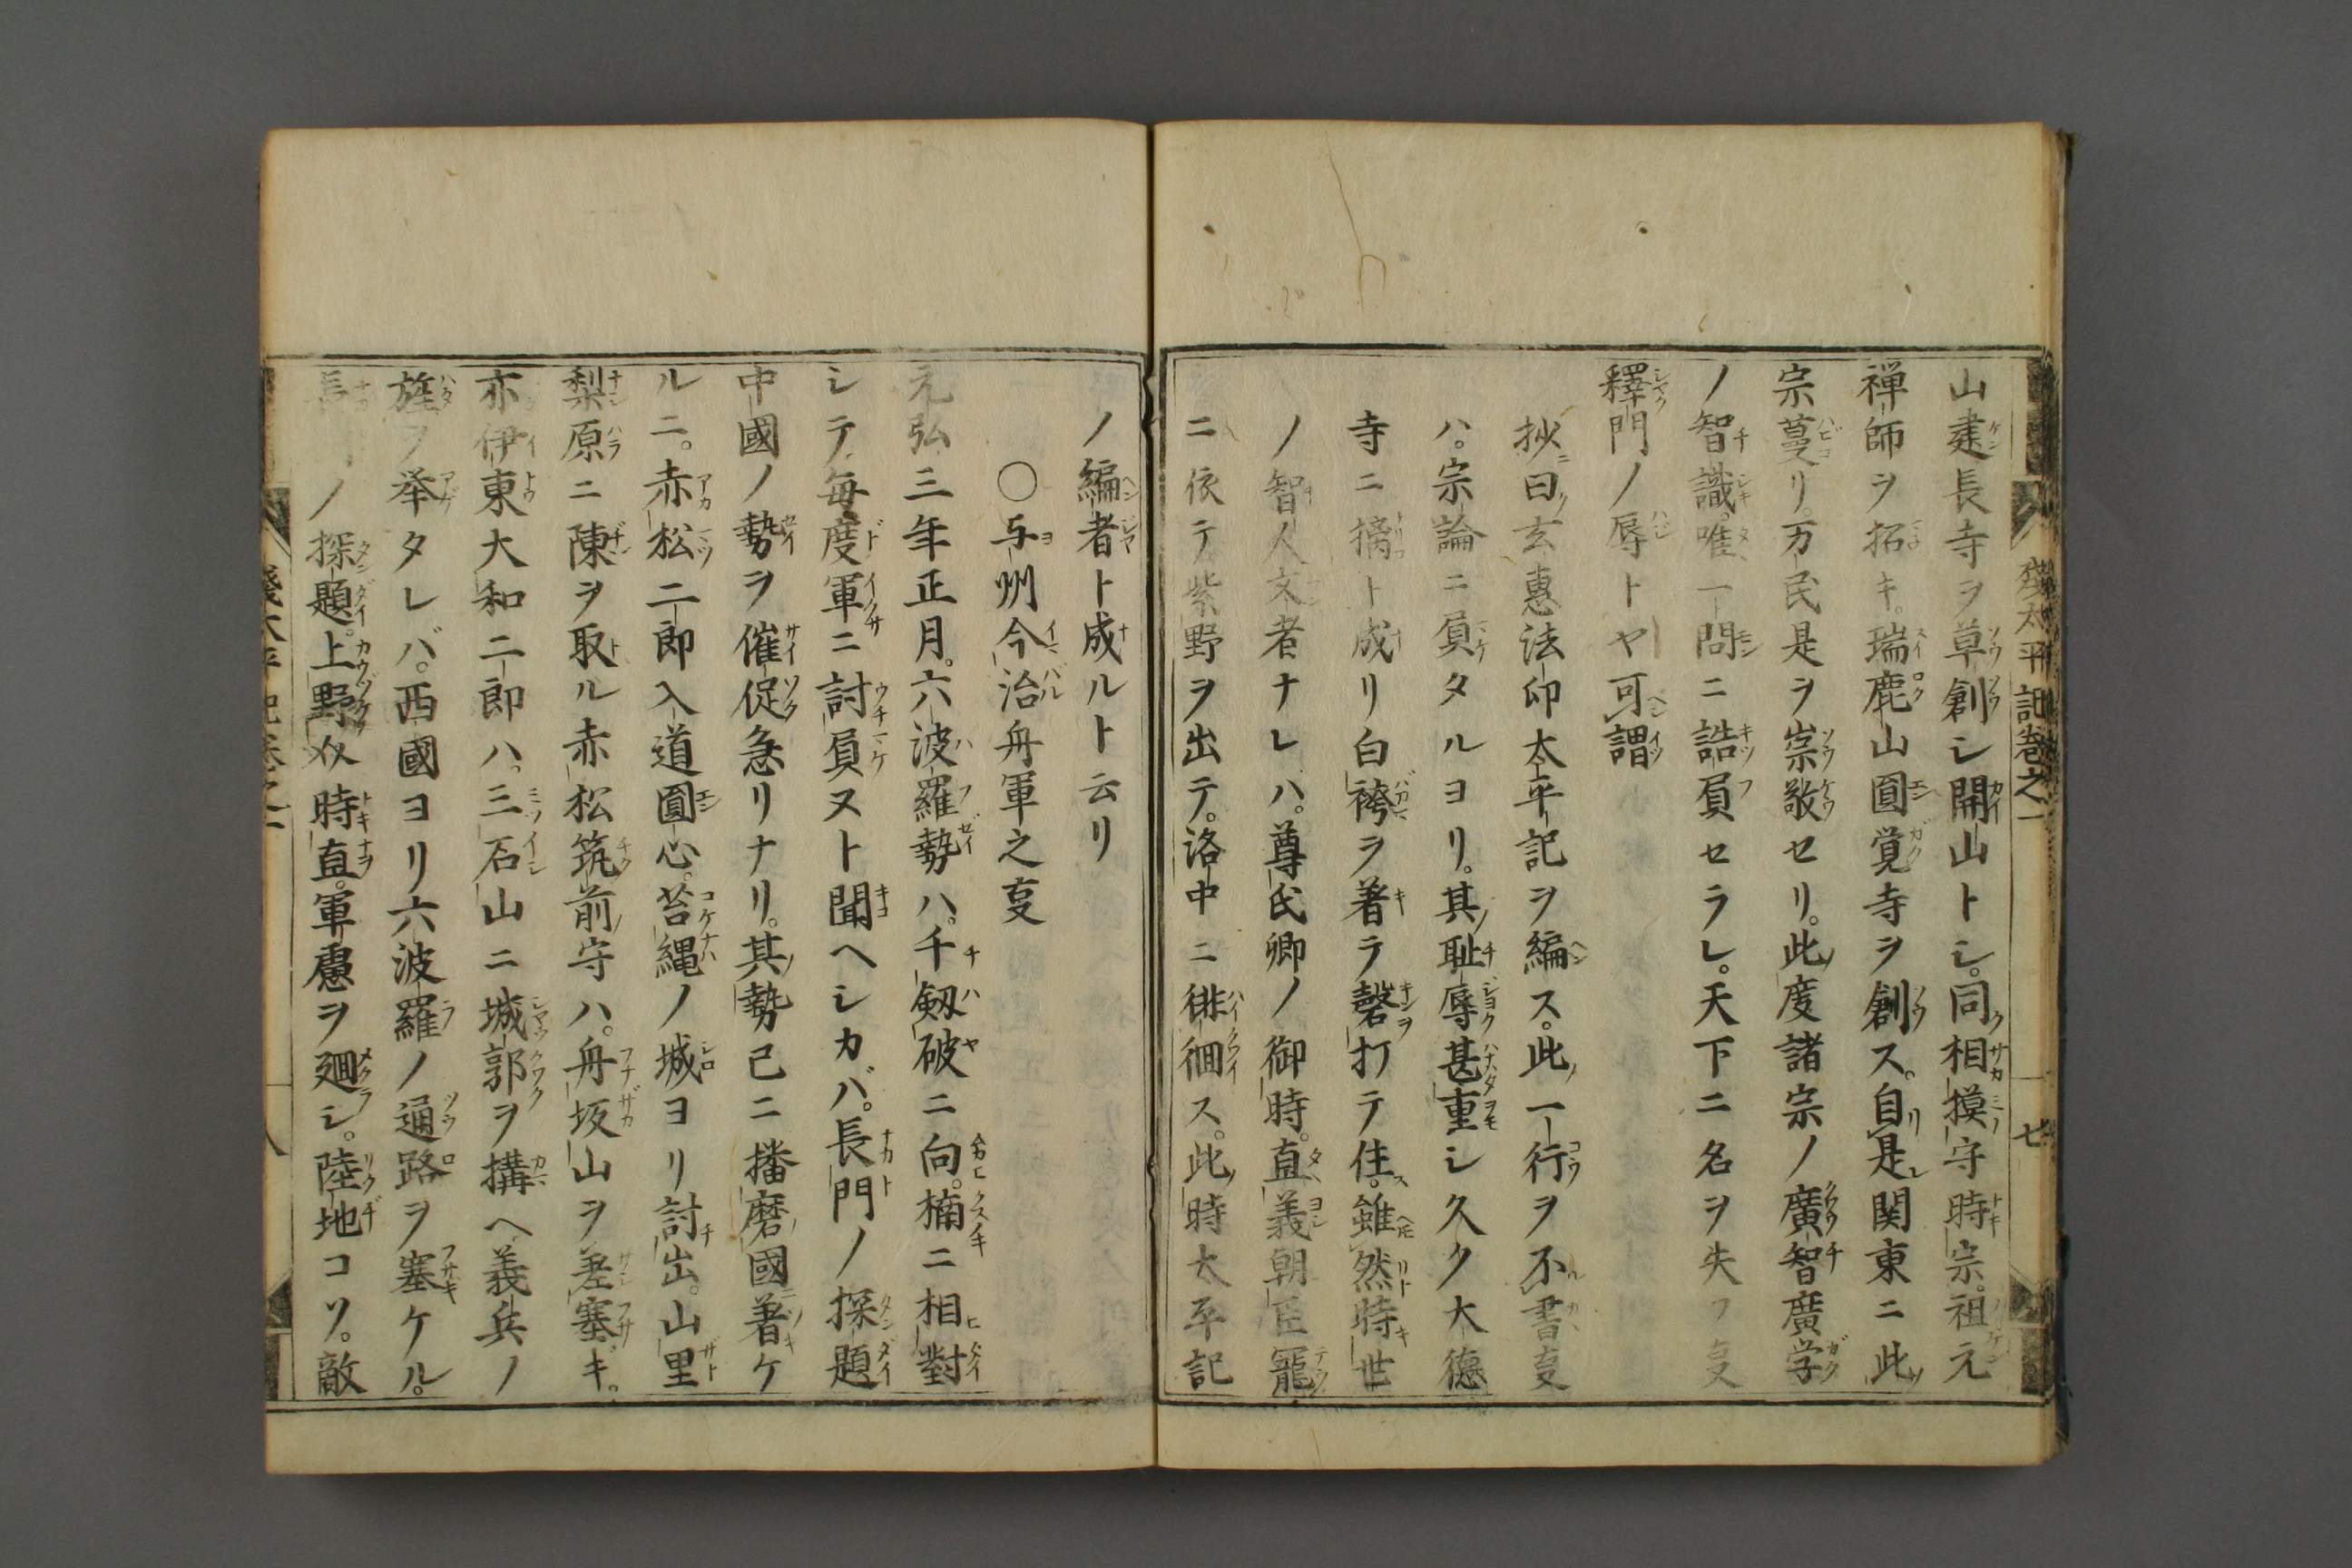 山建長寺ヲ草創シ開山トシ。同相摸守時宗。祖元
禅師ヲ招キ。瑞鹿山圓覚寺ヲ創ス。自是関東ニ此
宗蔓リ。万民是ヲ崇敬セリ。此度諸宗ノ廣智廣学
ノ智識。唯一問ニ詰負セラレ。天下ニ名ヲ失フ㕝
釋門ノ辱トヤ可謂
抄曰玄惠法印太平記ヲ編ス。此一行ヲ不書㕝
ハ。宗論ニ負タルヨリ。其耻辱甚重シ久ク大德
寺ニ擒ト成リ白袴ヲ著ラ磬打テ住。雖然時世
ノ智人文者ナレハ。尊氏卿ノ御時。直義朝臣寵
ニ依テ紫野ヲ出テ。洛中ニ徘徊ス。此時太平記
残太平記巻之一
七
ノ編者ト成ルト云リ
〇与州今治舟軍之㕝
元弘三年正月。六波羅勢ハ。千劔破ニ向。楠ニ相對
シテ毎度軍ニ討負ヌト聞ヘシカバ。長門ノ探題
中國ノ勢ヲ催促急リナリ。其勢已ニ播磨國著ケ
ルニ。赤松二郎入道圓心。苔縄ノ城ヨリ討出。山里
梨原ニ陳ヲ取ル赤松筑前守ハ。舟坂山ヲ差塞ギ。
亦伊東大和二郎ハ。三石山ニ城郭ヲ搆ヘ義兵ノ
旌ヲ举タレバ。西國ヨリ六波羅ノ通路ヲ塞ケル。
長門ノ探題。上野介時直。軍慮ヲ廻シ。陸地コソ。敵
残太平記巻之一
八